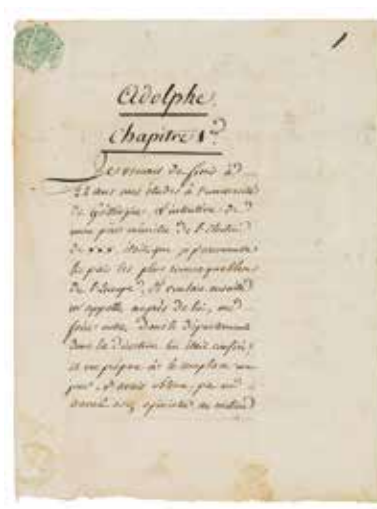 1
Adolphe.
Chapitre 1er
Je venais de finir à
22 ans mes études à l'université
de Göttingue. L'intention de
mon père ministre de l'électeur
de xxx. était que je parcourusse
les païs les plus remarquables
de l'Europe. Il voulait ensuite
m'appeller auprès de lui, me
faire entrer dans le département
dont la direction lui était confiée
et me préparer à le remplacer un
jour. J'avais obtenu, par un
travail assez opiniatre au milieu